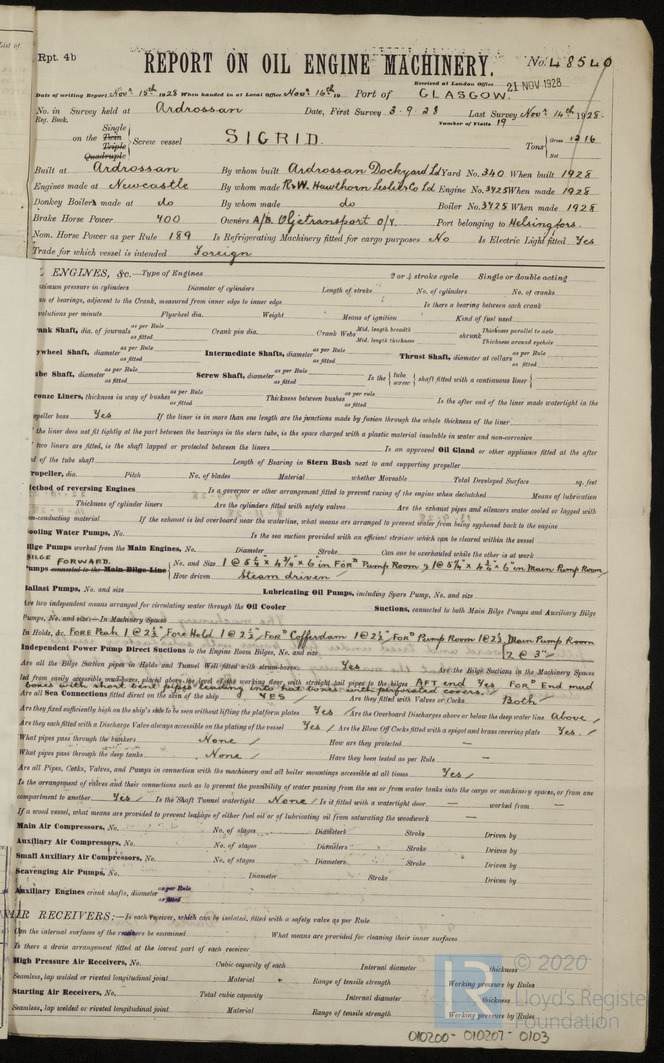 List of
Rpt. 4b
REPORT ON OIL ENGINE MACHINERY.
No. 48540
Received at London Office 21 NOV 1928
Date of writing Report Novr. 15th 1928 When handed in at Local Office Novr. 16th 19 Port of GLASGOW.
No. in Survey held at Ardrossan Date, First Survey 3.9.28 Last Survey Novr. 14th 1928.
Reg. Book. Number of Visits 19
Single
on the Twin Screw vessel SIGRID. Tons Gross 1216
Triple
Quadruple Net
Built at Ardrossan By whom built Ardrossan Dockyard Ld Yard No. 340 When built 1928
Engines made at Newcastle By whom made R & W. Hawthorn Leslie & Co Ld Engine No. 3425 When made 1928
Donkey Boilers made at do By whom made do Boiler No. 3425 When made 1928
Brake Horse Power 400 Owners A/B. Oljetransport O/Y. Port belonging to Helsingfors.
Nom. Horse Power as per Rule 189 Is Refrigerating Machinery fitted for cargo purposes No Is Electric Light fitted Yes
Trade for which vessel is intended Foreign
ENGINES, &c.—Type of Engines 2 or 4 stroke cycle Single or double acting
aximum pressure in cylinders Diameter of cylinders Length of stroke No. of cylinders No. of cranks
an of bearings, adjacent to the Crank, measured from inner edge to inner edge Is there a bearing between each crank
volutions per minute Flywheel dia. Weight Means of ignition Kind of fuel used
ank Shaft, dia. of journals as per Rule as fitted Crank pin dia. Crank Webs Mid. length breadth Mid. length thickness shrunk Thickness parallel to axis Thickness around eyehole
ywheel Shaft, diameter as per Rule as fitted Intermediate Shafts, diameter as per Rule as fitted Thrust Shaft, diameter at collars as per Rule as fitted
ube Shaft, diameter as per Rule as fitted Screw Shaft, diameter as per Rule as fitted Is the tube screw shaft fitted with a continuous liner
ronze Liners, thickness in way of bushes as per Rule as fitted Thickness between bushes as per rule as fitted Is the after end of the liner made watertight in the
opeller boss Yes If the liner is in more than one length are the junctions made by fusion through the whole thickness of the liner
the liner does not fit tightly at the part between the bearings in the stern tube, is the space charged with a plastic material insoluble in water and non-corrosive
two liners are fitted, is the shaft lapped or protected between the liners Is an approved Oil Gland or other appliance fitted at the after
d of the tube shaft Length of Bearing in Stern Bush next to and supporting propeller
ropeller, dia. Pitch No. of blades Material whether Moveable Total Developed Surface sq. feet
ethod of reversing Engines Is a governor or other arrangement fitted to prevent racing of the engine when declutched Means of lubrication
Thickness of cylinder liners Are the cylinders fitted with safety valves Are the exhaust pipes and silencers water cooled or lagged with
on-conducting material If the exhaust is led overboard near the waterline, what means are arranged to prevent water from being syphoned back to the engine
ooling Water Pumps, No. Is the sea suction provided with an efficient strainer which can be cleared within the vessel
ilge Pumps worked from the Main Engines, No. Diameter Stroke Can one be overhauled while the other is at work
BILGE FORWARD.
umps connected to the Main Bilge Line No. and Size 1 @ 5¼" x 4¾" x 6" in For'd Pump Room & 1 @ 5¼" x 4¾" x 6" in Main Pump Room
How driven Steam driven
allast Pumps, No. and size Lubricating Oil Pumps, including Spare Pump, No. and size
Are two independent means arranged for circulating water through the Oil Cooler Suctions, connected to both Main Bilge Pumps and Auxiliary Bilge
Pumps, No. and size:—In Machinery Spaces
In Holds, &c. Fore Peak 1 @ 2½" Fore Hold 1 @ 2½" For'd Cofferdam 1 @ 2½" For'd Pump Room 1 @ 2½ Main Pump Room
Independent Power Pump Direct Suctions to the Engine Room Bilges, No. and size 2 @ 3"
Are all the Bilge Suction pipes in Holds and Tunnel Well fitted with strum-boxes Yes Are the Bilge Suctions in the Machinery Spaces
led from easily accessible mud boxes, placed above the level of the working floor, with straight tail pipes to the bilges AFT end Yes For'd End mud
boxes with short bent pipes leading into hat boxes with perforated covers.
Are all Sea Connections fitted direct on the skin of the ship YES Are they fitted with Valves or Cocks Both
Are they fixed sufficiently high on the ship's side to be seen without lifting the platform plates Yes Are the Overboard Discharges above or below the deep water line Above
Are they each fitted with a Discharge Valve always accessible on the plating of the vessel Yes Are the Blow Off Cocks fitted with a spigot and brass covering plate Yes.
What pipes pass through the bunkers None How are they protected —
What pipes pass through the deep tanks None Have they been tested as per Rule —
Are all Pipes, Cocks, Valves, and Pumps in connection with the machinery and all boiler mountings accessible at all times Yes
Is the arrangement of valves and their connections such as to prevent the possibility of water passing from the sea or from water tanks into the cargo or machinery spaces, or from one
compartment to another Yes Is the Shaft Tunnel watertight None Is it fitted with a watertight door — worked from —
If a wood vessel, what means are provided to prevent leakage of either fuel oil or of lubricating oil from saturating the woodwork —
Main Air Compressors, No. No. of stages Diameters Stroke Driven by
Auxiliary Air Compressors, No. No. of stages Diameters Stroke Driven by
Small Auxiliary Air Compressors, No. No. of stages Diameters Stroke Driven by
Scavenging Air Pumps, No. Diameter Stroke Driven by
Auxiliary Engines crank shafts, diameter as per Rule as fitted
AIR RECEIVERS:—Is each receiver, which can be isolated, fitted with a safety valve as per Rule
Can the internal surfaces of the receivers be examined What means are provided for cleaning their inner surfaces
Is there a drain arrangement fitted at the lowest part of each receiver
High Pressure Air Receivers, No. Cubic capacity of each Internal diameter thickness
Seamless, lap welded or riveted longitudinal joint Material Range of tensile strength Working pressure by Rules
Starting Air Receivers, No. Total cubic capacity Internal diameter thickness
Seamless, lap welded or riveted longitudinal joint Material Range of tensile strength Working pressure by Rules
© 2020
Lloyd's Register
Foundation
010200-010207-0103